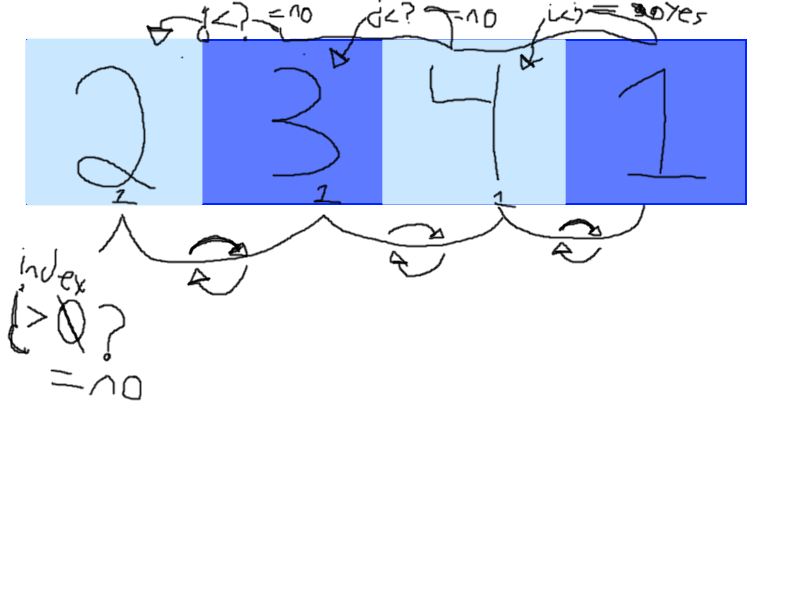 i<? =no
j<? =no
i<? = yes
2 3 4 1
1 1 1
index
i > 0 ?
= no